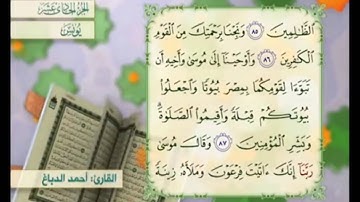 الجزء الحادي عشر
يونس
الظَّالِمِينَ ٨٥ وَنَجِّنَا بِرَحْمَتِكَ مِنَ الْقَوْمِ
الْكَافِرِينَ ٨٦ وَأَوْحَيْنَا إِلَىٰ مُوسَىٰ وَأَخِيهِ أَن
تَبَوَّءَا لِقَوْمِكُمَا بِمِصْرَ بُيُوتًا وَاجْعَلُوا
بُيُوتَكُمْ قِبْلَةً وَأَقِيمُوا الصَّلَوٰةَ
وَبَشِّرِ الْمُؤْمِنِينَ ٨٧ وَقَالَ مُوسَىٰ
رَبَّنَا إِنَّكَ ءَاتَيْتَ فِرْعَوْنَ وَمَلَأَهُ زِينَةً
القارئ: أحمد الدباغ